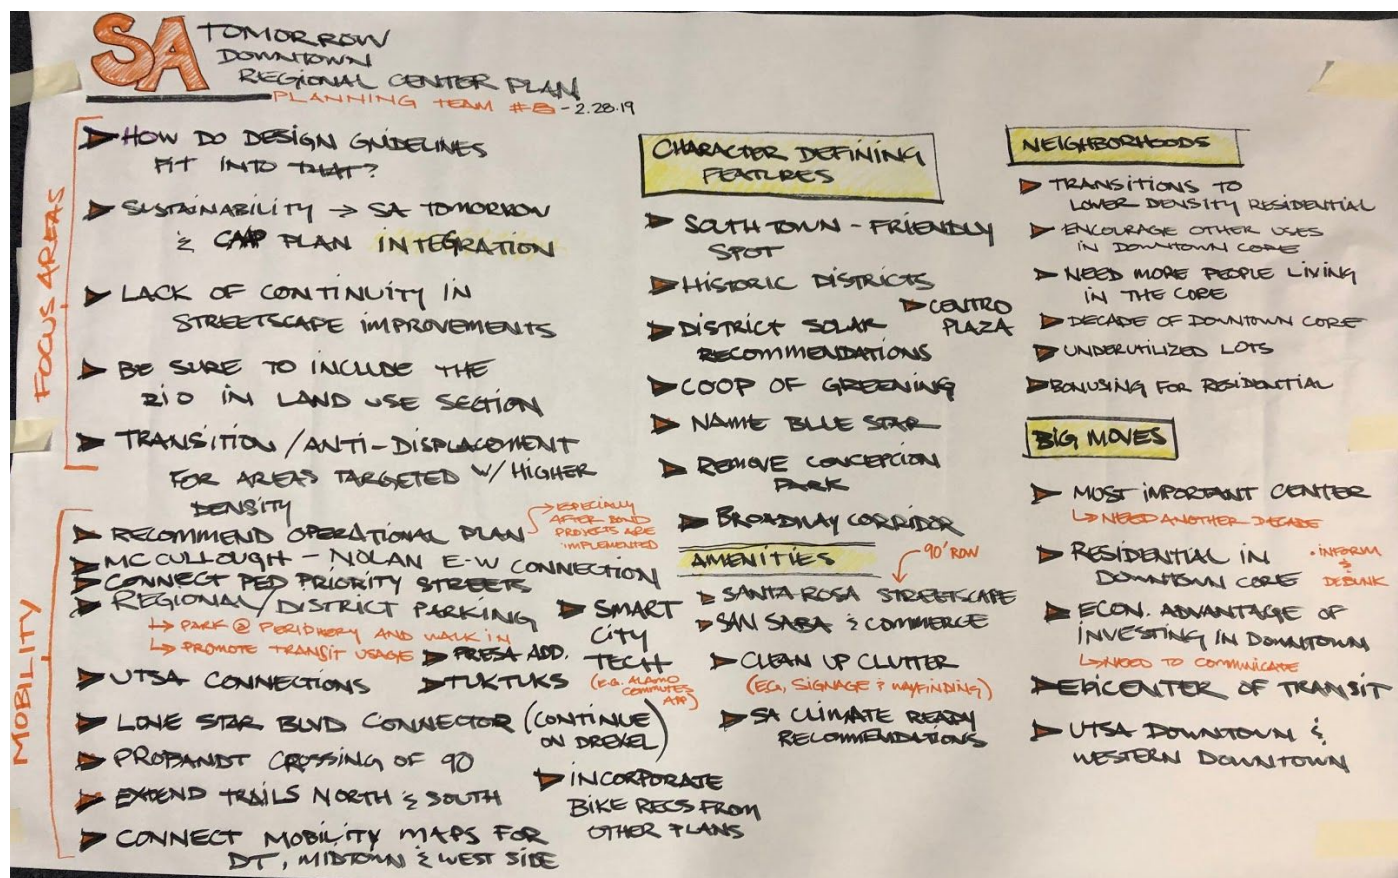 SA TOMORROW
DOWNTOWN
REGIONAL CENTER PLAN
PLANNING TEAM #8 - 2.28.19
FOCUS AREAS
HOW DO DESIGN GUIDELINES
FIT INTO THAT?
SUSTAINABILITY → SA TOMORROW
& CAAP PLAN INTEGRATION
LACK OF CONTINUITY IN
STREETSCAPE IMPROVEMENTS
BE SURE TO INCLUDE THE
RIO IN LAND USE SECTION
TRANSITION / ANTI-DISPLACEMENT
FOR AREAS TARGETED W/ HIGHER
DENSITY
MOBILITY
RECOMMEND OPERATIONAL PLAN
→ ESPECIALLY
AFTER BOND
PROJECTS ARE
IMPLEMENTED
MCCULLOUGH - NOLAN E-W CONNECTION
CONNECT PED PRIORITY STREETS
REGIONAL / DISTRICT PARKING
↳ PARK @ PERIPHERY AND WALK IN
↳ PROMOTE TRANSIT USAGE
SMART
CITY
TECH
(E.G. ALAMO
COMMUTES
APP)
PRESA ADD.
UTSA CONNECTIONS
TUKTUKS
LONE STAR BLVD CONNECTOR (CONTINUE
ON DREXEL)
PROBANDT CROSSING OF 90
EXTEND TRAILS NORTH & SOUTH
CONNECT MOBILITY MAPS FOR
DT, MIDTOWN & WEST SIDE
INCORPORATE
BIKE RECS FROM
OTHER PLANS
CHARACTER DEFINING
FEATURES
SOUTH TOWN - FRIENDLY
SPOT
HISTORIC DISTRICTS
CENTRO
PLAZA
DISTRICT SOLAR
RECOMMENDATIONS
COOP OF GREENING
NAME BLUE STAR
REMOVE CONCEPCION
PARK
BROADWAY CORRIDOR
AMENITIES
90' ROW
SANTA ROSA STREETSCAPE
SAN SABA & COMMERCE
CLEAN UP CLUTTER
(EG, SIGNAGE & WAYFINDING)
SA CLIMATE READY
RECOMMENDATIONS
NEIGHBORHOODS
TRANSITIONS TO
LOWER DENSITY RESIDENTIAL
ENCOURAGE OTHER USES
IN DOWNTOWN CORE
NEED MORE PEOPLE LIVING
IN THE CORE
DECADE OF DOWNTOWN CORE
UNDERUTILIZED LOTS
BONUSING FOR RESIDENTIAL
BIG MOVES
MOST IMPORTANT CENTER
↳ NEED ANOTHER DECADE
RESIDENTIAL IN
DOWNTOWN CORE
• INFORM
&
DEBUNK
ECON. ADVANTAGE OF
INVESTING IN DOWNTOWN
↳ NEED TO COMMUNICATE
EPICENTER OF TRANSIT
UTSA DOWNTOWN &
WESTERN DOWNTOWN